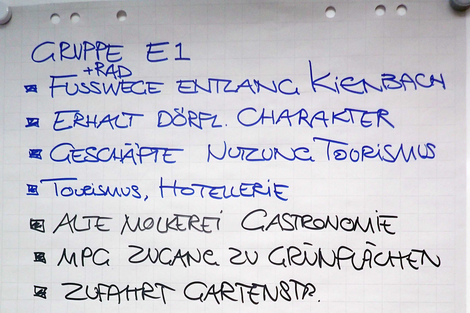 GRUPPE E1
+RAD
FUSSWEGE ENTLANG KIENBACH
ERHALT DÖRFL. CHARAKTER
GESCHÄFTE NUTZUNG TOURISMUS
TOURISMUS, HOTELLERIE
ALTE MOLKEREI GASTRONOMIE
MPG ZUGANG ZU GRÜNFLÄCHEN
ZUFAHRT GARTENSTR.